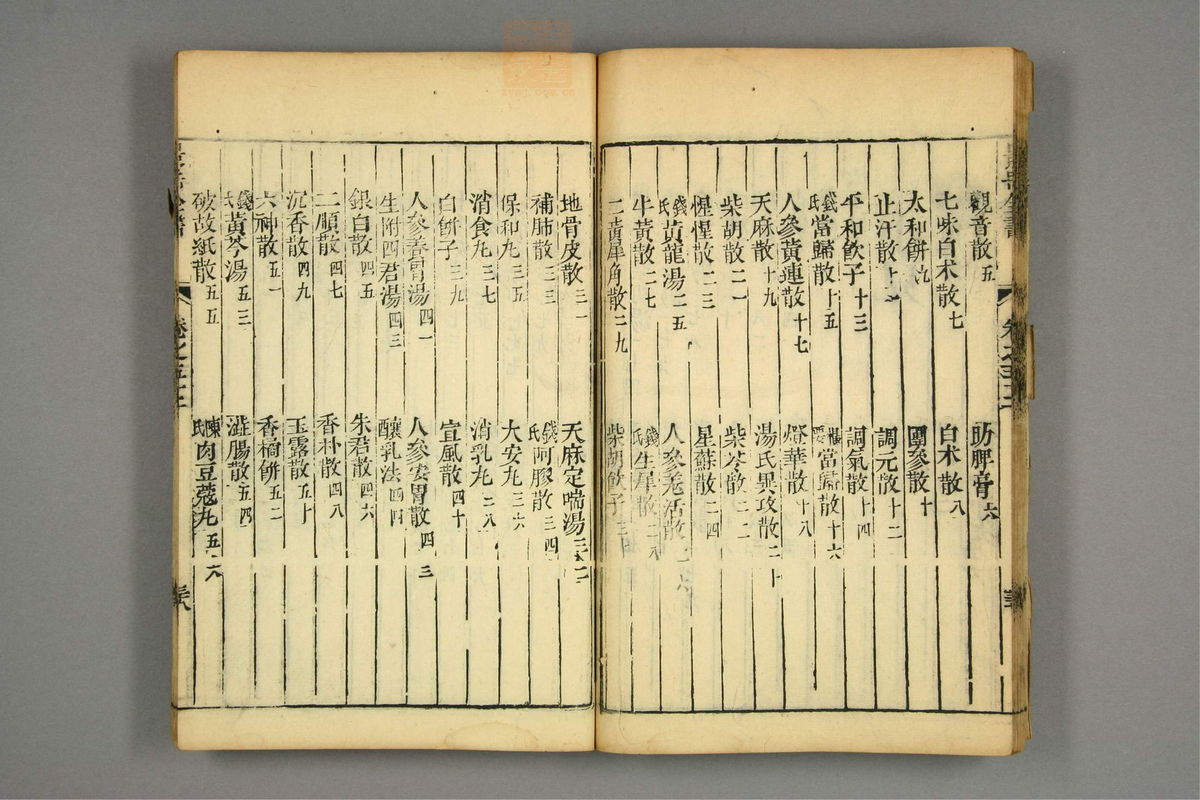 觀音散五 肪脾膏六
七味白朮散七 白朮散八
太和餅九 團參散十
止汗散十一 調元散十二
平和飮子十三 調氣散十四
錢氏當歸散十五 當歸散十六
人參黃連散十七 燈華散十八
天麻散十九 湯氏異攻散二十
柴胡散二一 柴苓散二二
惺惺散二三 星蘇散二四
錢氏黃龍湯二五 人參羌活散二六
牛黃散二七 錢氏生犀散二八
二黃犀角散二九 柴胡飮子三十
地骨皮散三一 天麻定喘湯三二
補肺散三三 錢氏阿膠散三四
保和丸三五 大安丸三六
消食丸三七 消乳丸三八
白餅子三九 宣風散四十
人參養胃湯四一 人參安胃散四二
生附四君湯四三 釀乳法四四
銀白散四五 朱君散四六
二順散四七 香朴散四八
沉香散四九 玉露散五十
六神散五一 香橘餅五二
錢氏黃芩湯五三 澁腸散五四
破故紙散五五 陳氏肉豆蔻丸五六
卷之五十三